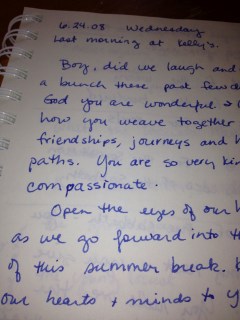 6.24.08 Wednesday
Last morning at Kelly's.
Boy, did we laugh and
a bunch these past few
God you are wonderful
how you weave together
friendships, journeys and
paths. You are so very
compassionate.
Open the eyes of our
as we go forward into
of this summer break.
our hearts + minds to